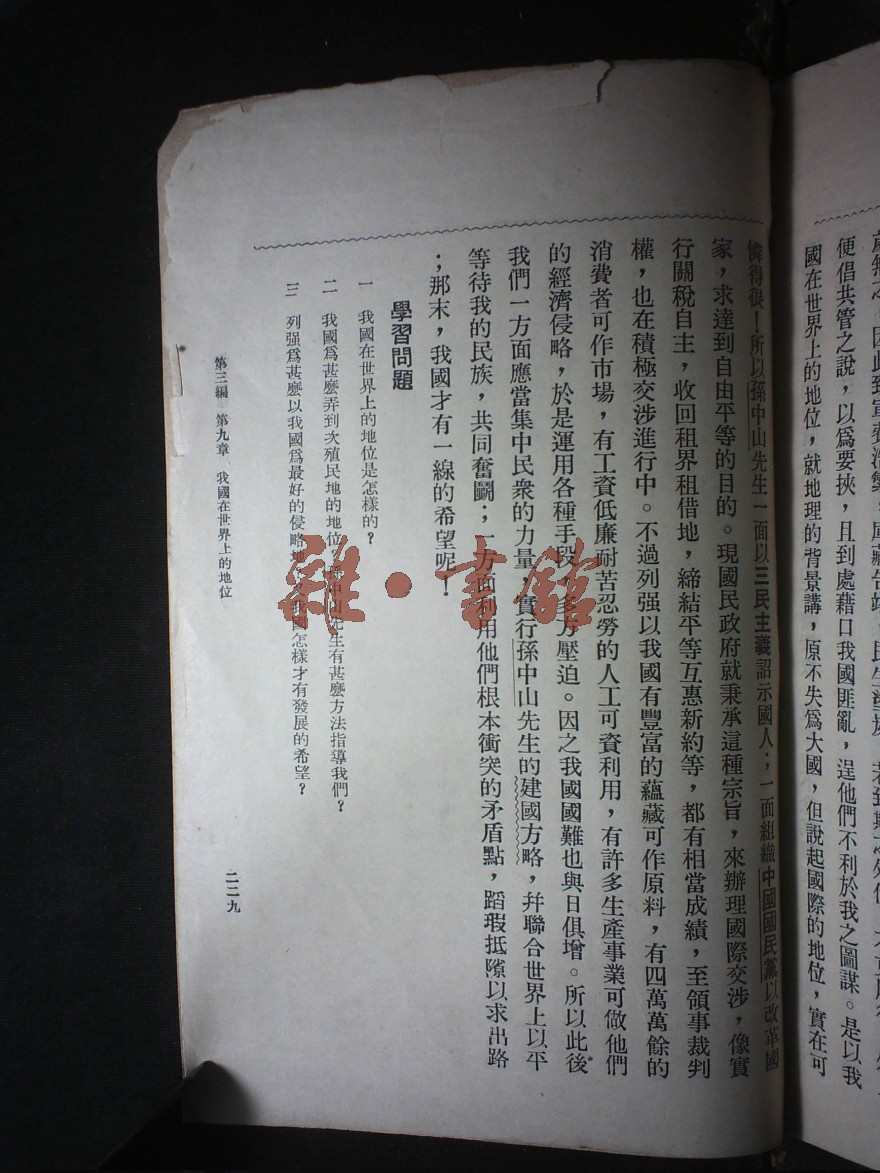 便倡共管之說，以爲要挾，且到處藉口我國匪亂，逞他們不利於我之圖謀。是以我
國在世界上的地位，就地理的背景講，原不失爲大國，但說起國際的地位，實在可
憐得很！所以孫中山先生一面以三民主義詔示國人；一面組織中國國民黨以改革國
家，求達到自由平等的目的。現國民政府就秉承這種宗旨，來辦理國際交涉，像實
行關稅自主，收回租界租借地，締結平等互惠新約等，都有相當成績，至領事裁判
權，也在積極交涉進行中。不過列强以我國有豐富的蘊藏可作原料，有四萬萬餘的
消費者可作市場，有工資低廉耐苦忍勞的人工可資利用，有許多生產事業可做他們
的經濟侵略，於是運用各種手段，多方壓迫。因之我國國難也與日俱增。所以此後
我們一方面應當集中民衆的力量，實行孫中山先生的建國方略，幷聯合世界上以平
等待我的民族，共同奮鬭；一方面利用他們根本衝突的矛盾點，蹈瑕抵隙以求出路
；那末，我國才有一線的希望呢！
學習問題
一 我國在世界上的地位是怎樣的？
二 我國爲甚麽弄到次殖民地的地位？孫中山先生有甚麽方法指導我們？
三 列强爲甚麽以我國爲最好的侵略地？我國怎樣才有發展的希望？
第三編 第九章 我國在世界上的地位
二二九
雜·書館